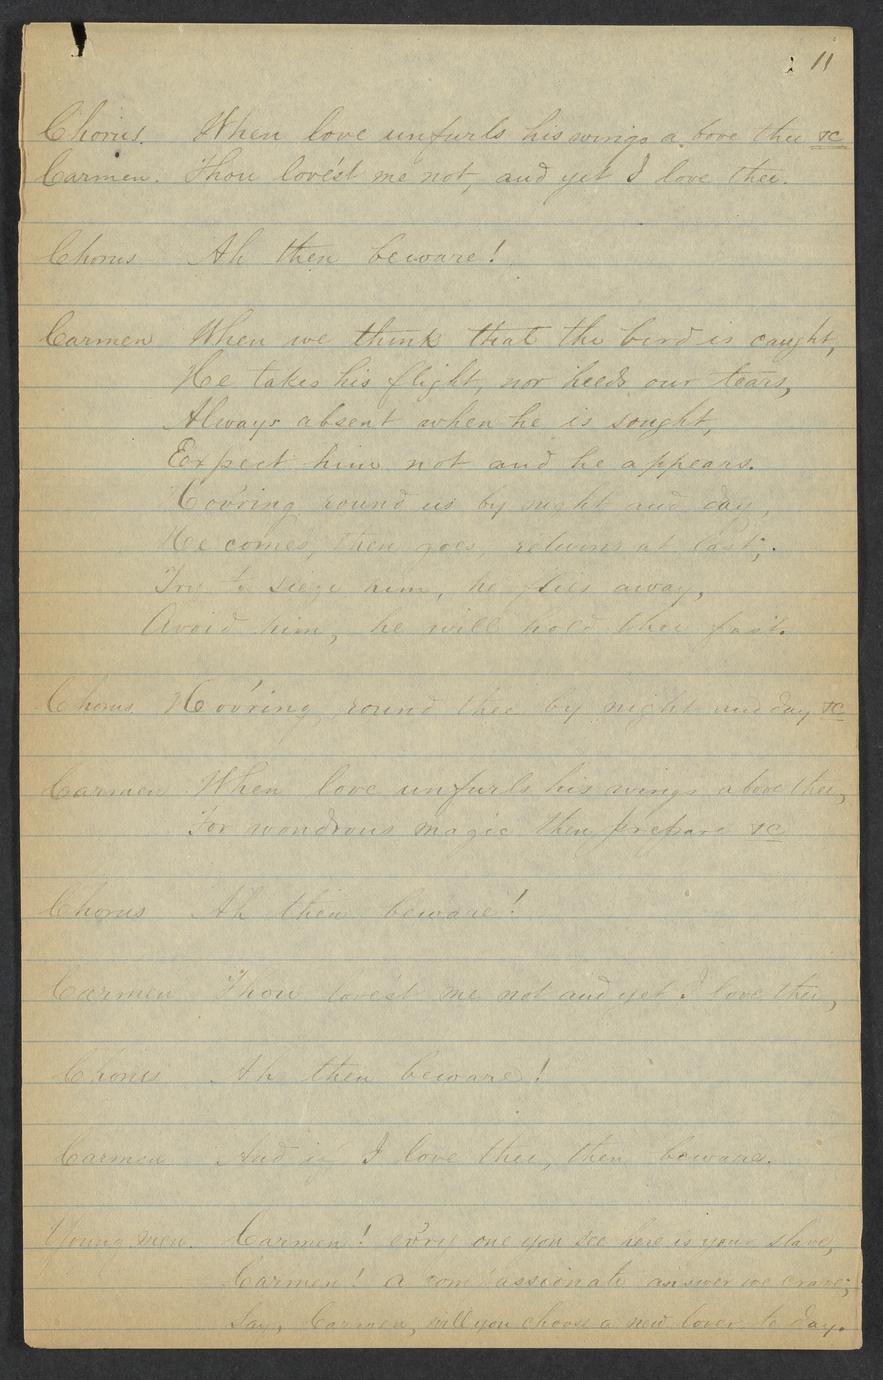 11
Chorus. When love unfurls his wings above thee &c
Carmen. Thou lovést me not, and yet I love thee.
Chorus Ah then beware!
Carmen When we think that the bird is caught,
He takes his flight, nor heeds our tears,
Always absent when he is sought,
Expect him not and he appears.
Hov'ring round us by night and day,
He comes, then goes, returns at last;
Try to siege him, he flies away,
Avoid him, he will hold thee fast.
Chorus Hov'ring round thee by night and day &c
Carmen When love unfurls his wings above thee,
For wondrous magic then prepare &c
Chorus Ah then beware!
Carmen Thou lovest me not and yet I love thee,
Chorus Ah then beware!
Carmen And if I love thee, then beware.
Young men. Carmen! ev'ry one you see here is your slave,
Carmen! a compassionate answer we crave;
Say, Carmen, will you choose a new lover to day.